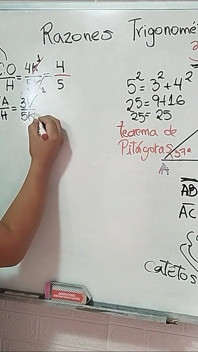 Razones Trigonomét
CO
H = 4K = 4
5
A
H = 3
5K
5² = 3² + 4²
25 = 9+16
25 = 25
teorema de
Pitágoras
37°
A
AB
AC
Catetos